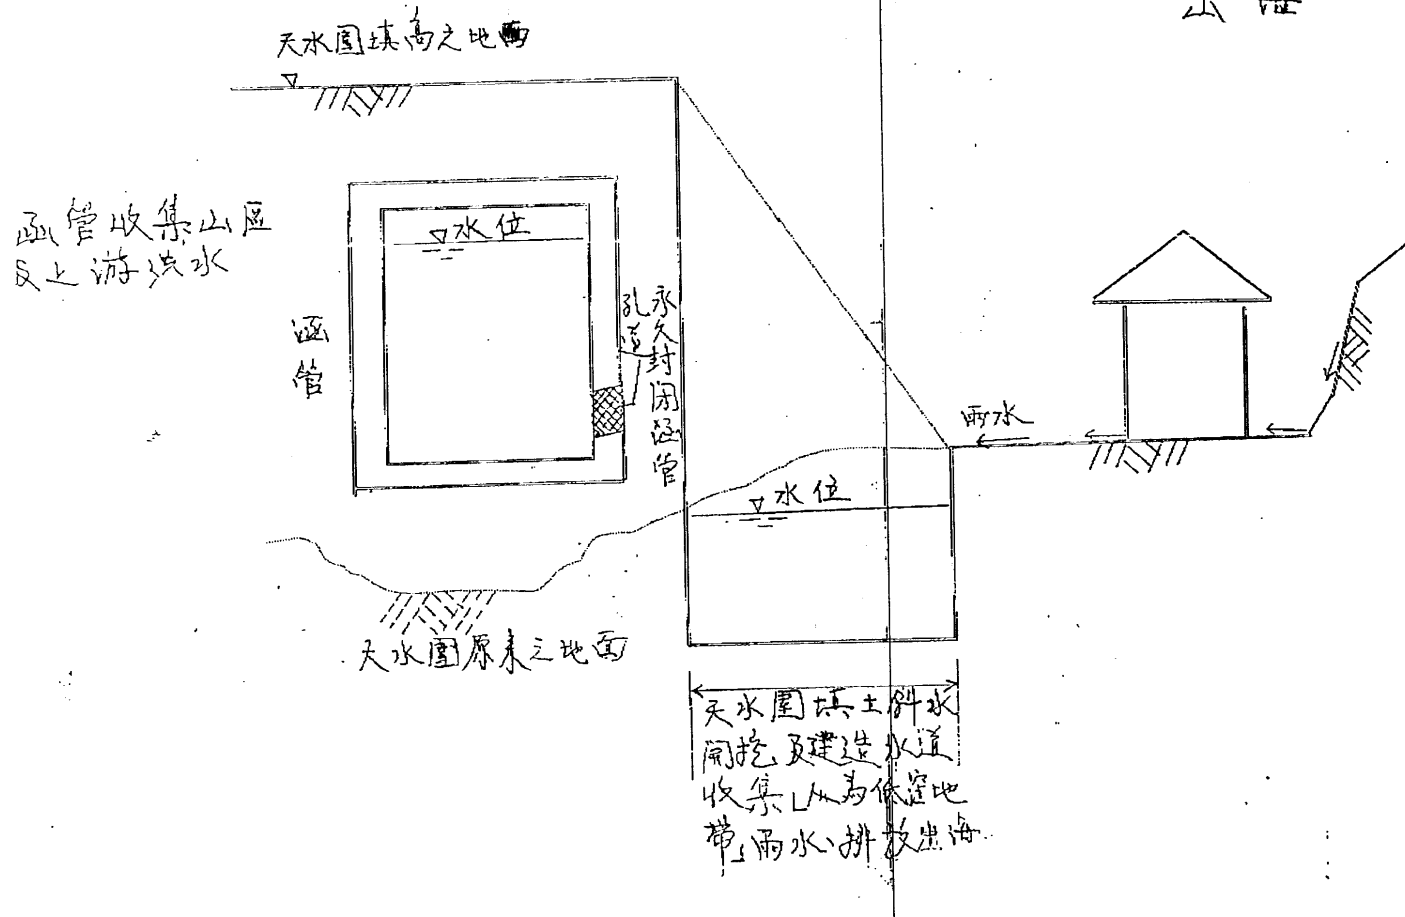 山
天水圍填高之地面
函管收集山區
及上游洪水
水位
涵管
孔道
永久封閉涵管
雨水
水位
天水圍原來之地面
天水圍填土斜水
開挖及建造水道
收集「人為低窪地
帶」雨水、排放出海